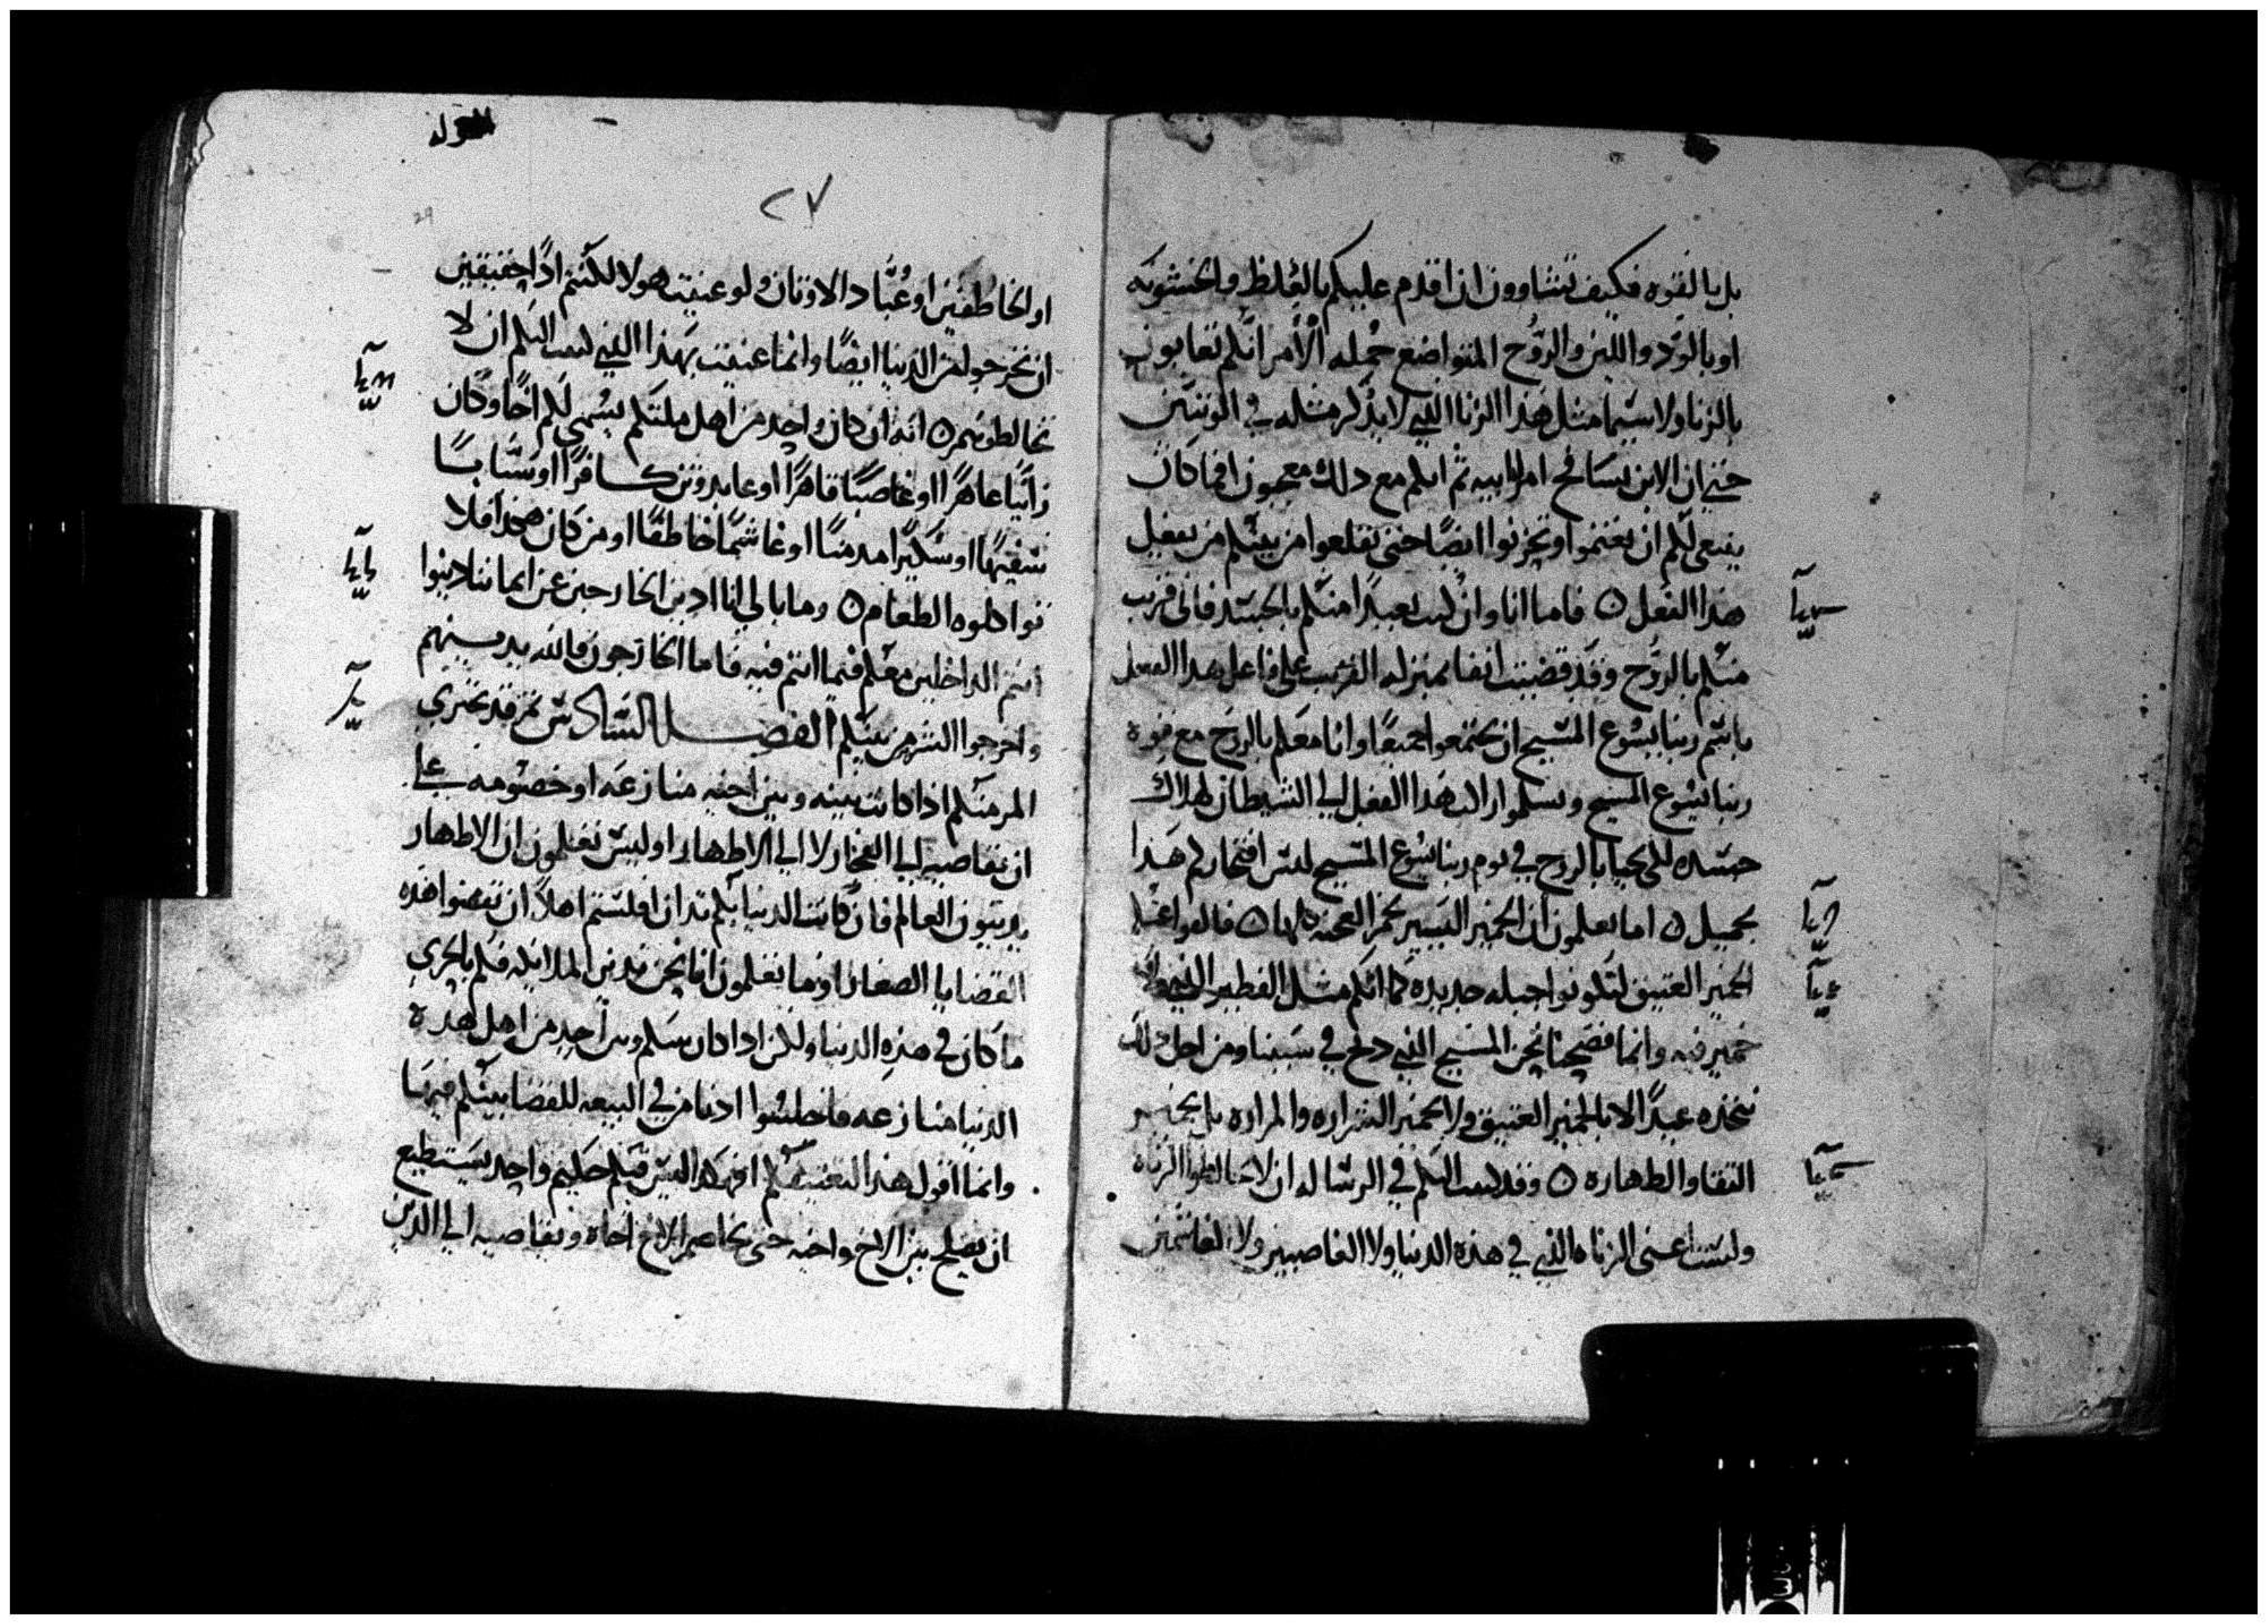 بل بالقوه فكيف تشاوون ان اقدم عليكم بالغلظ والخشونه
او بالود واللين والروح المتواضع جمله الأمر انكم تعابون
بالزنا ولا سيما مثل هذا الزنا الذي لا يذكر مثله في الوثنيين
حتي ان الابن يسافح امراه ابيه ثم انكم مع ذلك معجبون افما كان
ينبغي لكم ان تغتموا وتحزنوا ايضًا حتى تقلعوا من بينكم من يفعل
هذا الفعل ٥ فاما انا وان كنت بعيدًا منكم بالجسد فاني قريب
منكم بالروح وقد قضيت انفا بمنزله القريب على فاعل هذا الفعل
باسم ربنا يسوع المسيح ان تجتمعوا جميعًا وانا معكم بالروح مع قوه
ربنا يسوع المسيح وتسلموا هذا الفعل الي الشيطان لهلاك
جسده لكي يحيا بالروح في يوم ربنا يسوع المسيح ليس افتخاركم هذا
بجميل ٥ اما تعلمون ان الخمير اليسير يخمر العجنه كلها ٥ فالقوا عنكم
الخمير العتيق لتكونوا جبله جديده كما انكم مثل الفطير الذي لا
خمير فيه وانما فصحنا نحن المسيح الذي ذبح في سببنا ومن اجل ذلك
نتخذه عيدًا لا بالخمير العتيق ولا بخمير الشراره والمراره بل بخمير
النقا والطهاره ٥ وقد كتبت اليكم في الرساله ان لا تخالطوا الزناه
ولست اعني الزناه الذي في هذه الدنيا ولا الغاصبين ولا الغاشمين
٢٧
او الخاطفين او عُبَّاد الاوثان ولو عنيت هولا لكنتم اذًا حقيقين
ان تخرجوا من الدنيا ايضًا وانما عنيت بهذا الذي كتبت اليكم ان لا
تخالطوهم ٥ انه ان كان واحد من اهل ملتكم يسمي لكم اخًا وكان
زانيًا عاهرًا او غاصبًا قاهرًا او عابد وثن كافرًا او سَّبابًا
سفيهًا او سكيرا مدمنًا او غاشمًا خاطفًا او من كان هكذا فلا
تواكلوه الطعام ٥ وما بالي انا ادين الخارجين عن ايماننا دينوا
انتم الداخلين معكم فيما انتم فيه فاما الخارجون فالله يدينهم
واخرجوا الشر من بينكم الفصل السادس ثم قد يجتري
المر منكم اذا كانت بينه وبين اخيه منازعه او خصومه على
ان يقاضيه الي الفجار لا الي الاطهار اوليس تعلمون ان الاطهار
يدينون العالم فان كانت الدنيا بكم تدان افلستم اهلاً ان تقضوا هذه
القضايا الصغار اوما تعلمون انا نحن ندين الملايكه فكم بالحري
ما كان في هذه الدنيا ولكن اذا كان بينكم وبين احد من اهل هذه
الدنيا منازعه فاجلسوا ادنا من في البيعه للقضا بينكم فيها
وانما اقول هذا لتعنيفكم افهكذا ليس فيكم حكيم واحد يستطيع
ان يصلح بين الاخ واخيه حتى يخاصم الاخ اخاه ويقاضيه الي الذين